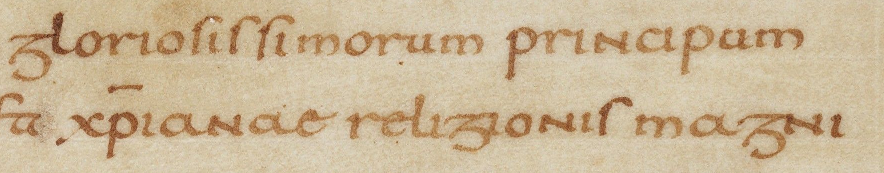 gloriosissimorum principum
xp̄ianae religionis magni